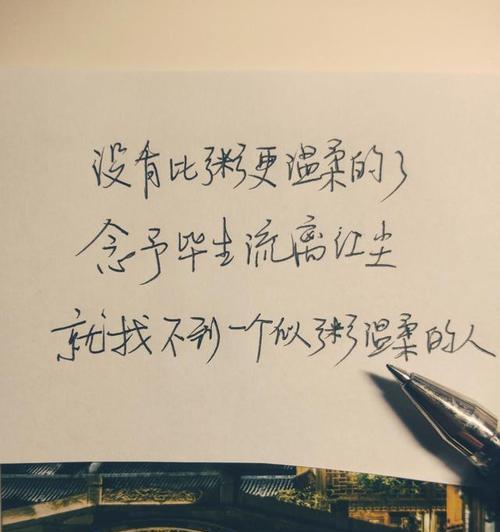 没有比粥更温柔的了
念予毕生流离红尘
就找不到一个似粥温柔的人